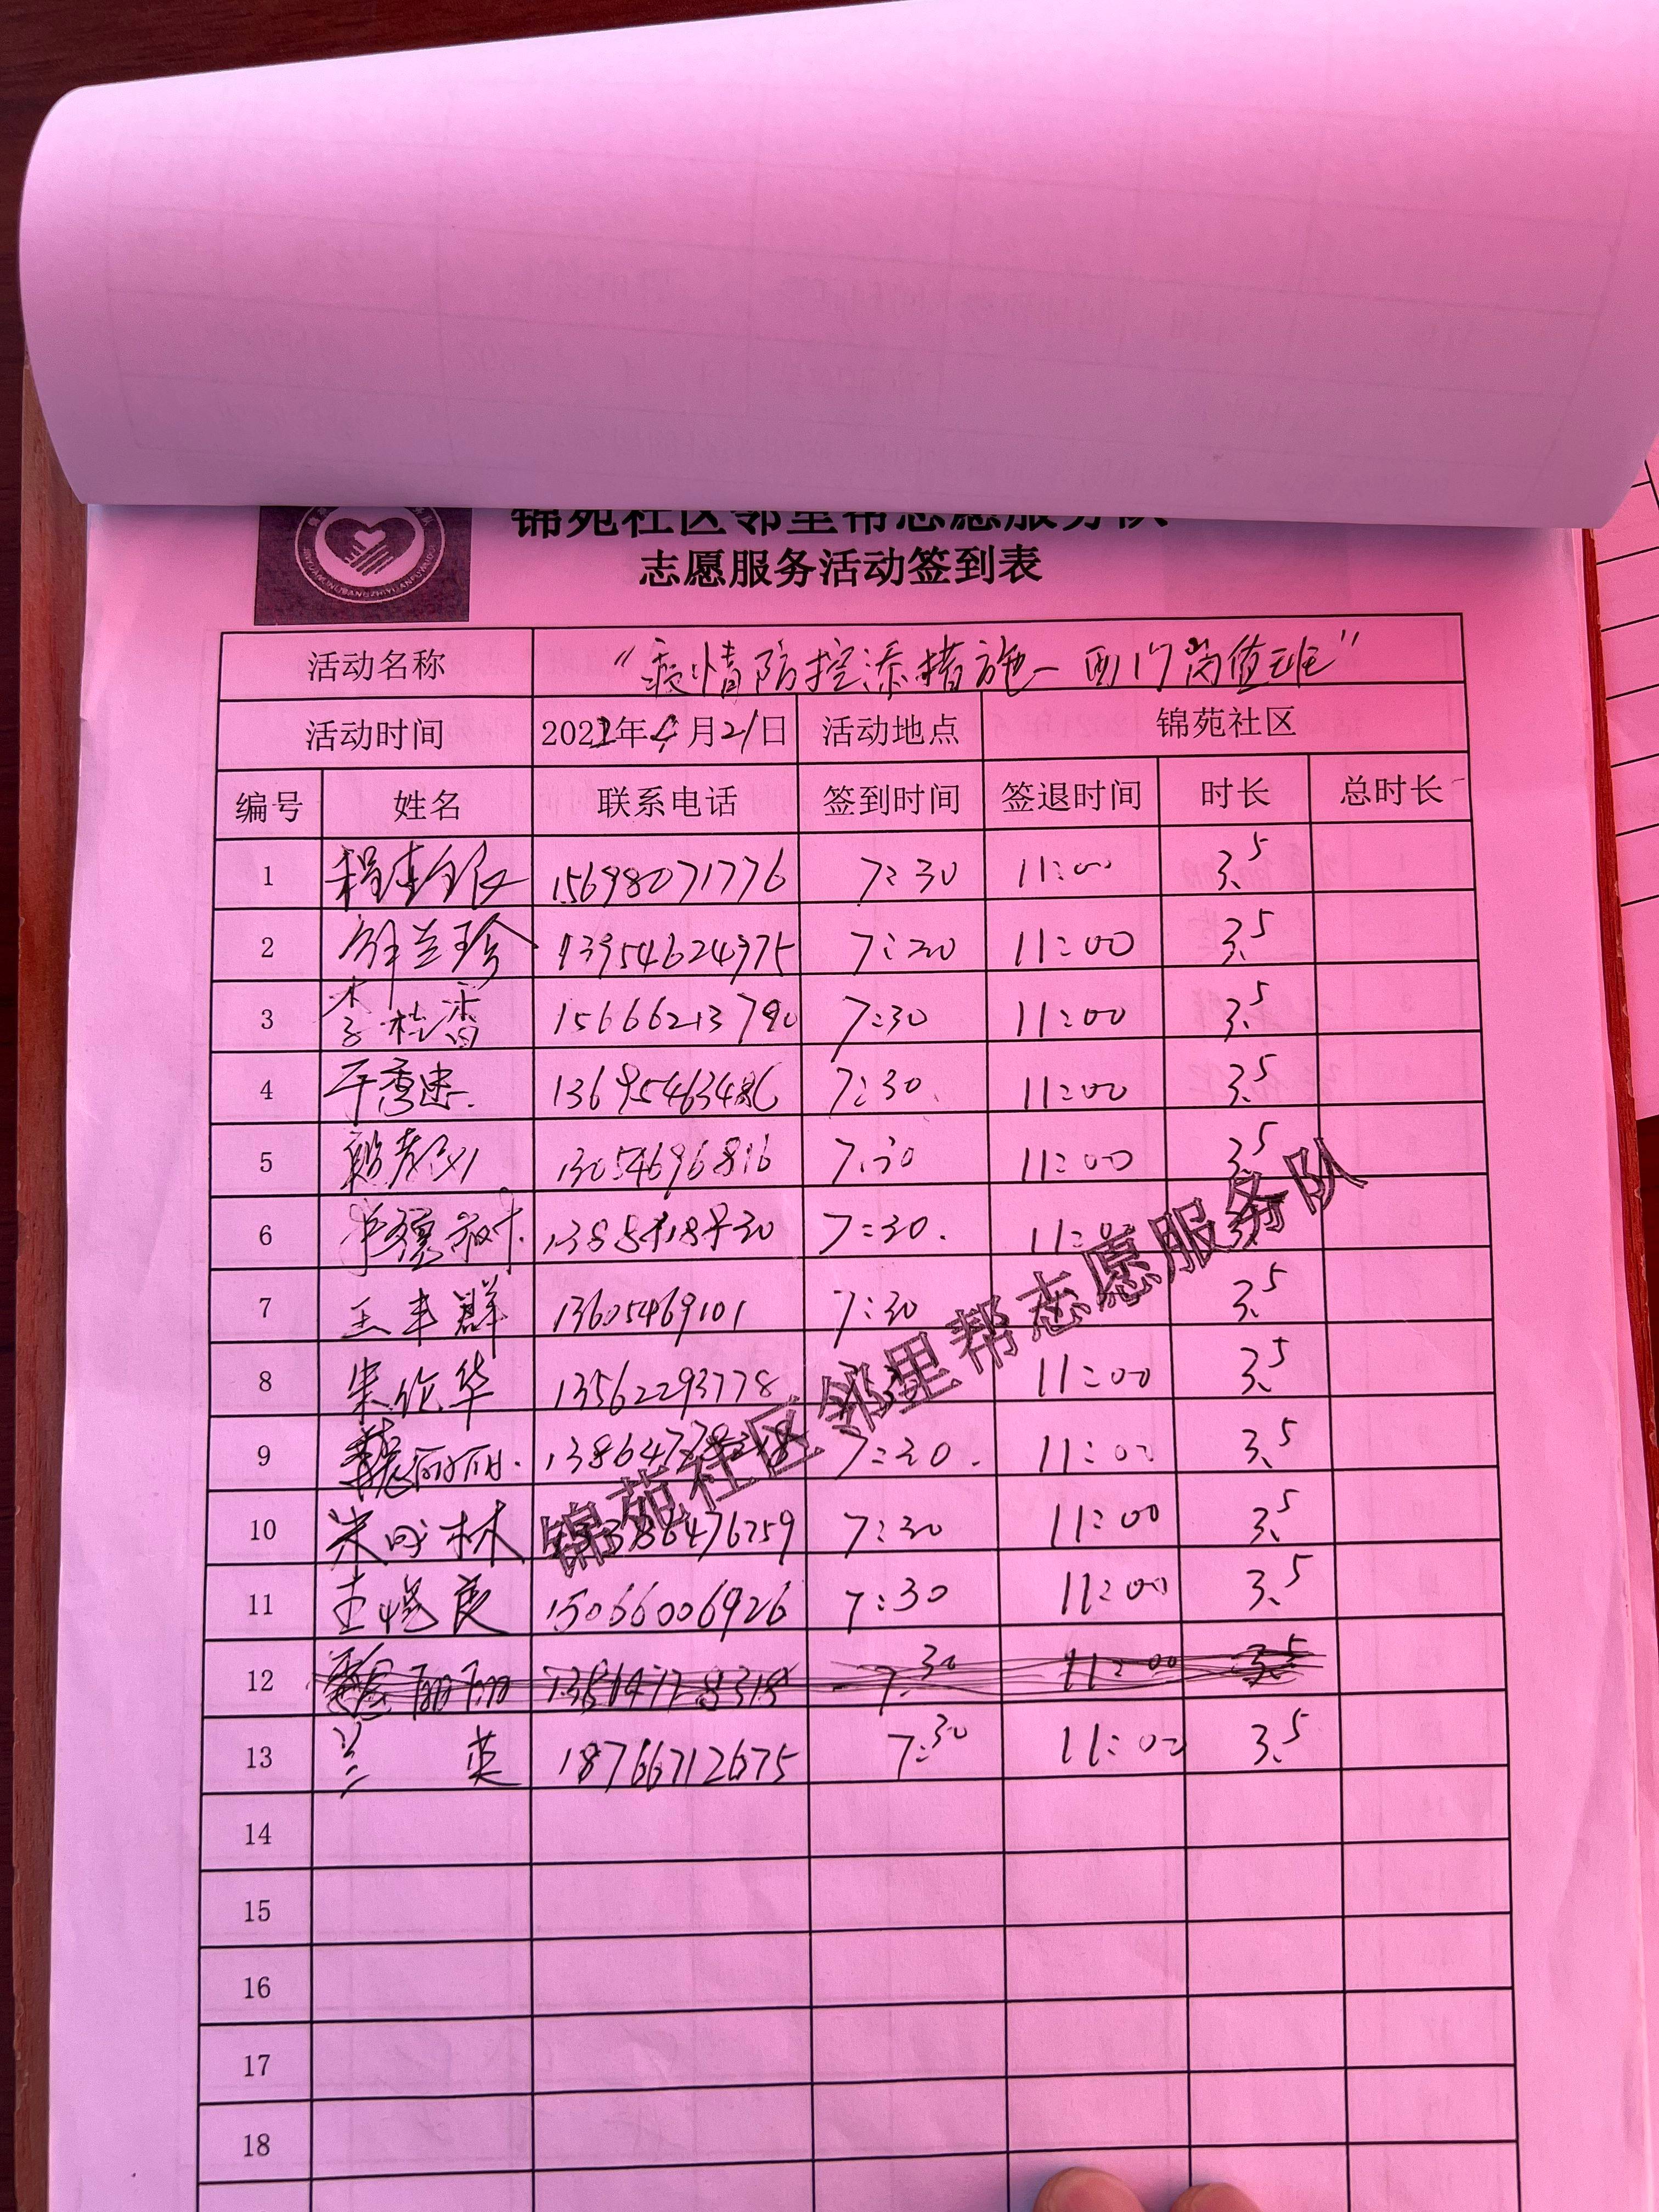 锦苑社区邻里帮志愿服务队
志愿服务活动签到表
活动名称 “疫情防控添措施—西门岗值班”
活动时间 2022年4月21日 活动地点 锦苑社区
编号 姓名 联系电话 签到时间 签退时间 时长 总时长
1 15698071776 7:30 11:00 3.5
2 解兰珍 13954624975 7:30 11:00 3.5
3 李桂香 15666213790 7:30 11:00 3.5
4 于秀忠 7:30 11:00 3.5
5 13054696816 7:30 11:00 3.5
6 7:30 11:00
7 王丰群 13605469101 7:30 3.5
8 朱伦华 13562293778 11:00 3.5
9 魏丽丽 7:30 11:00 3.5
10 7:30 11:00 3.5
11 15066006926 7:30 11:00 3.5
12 魏丽丽 7:30 11:00 3.5
13 兰英 18766712675 7:30 11:00 3.5
14
15
16
17
18
锦苑社区邻里帮志愿服务队